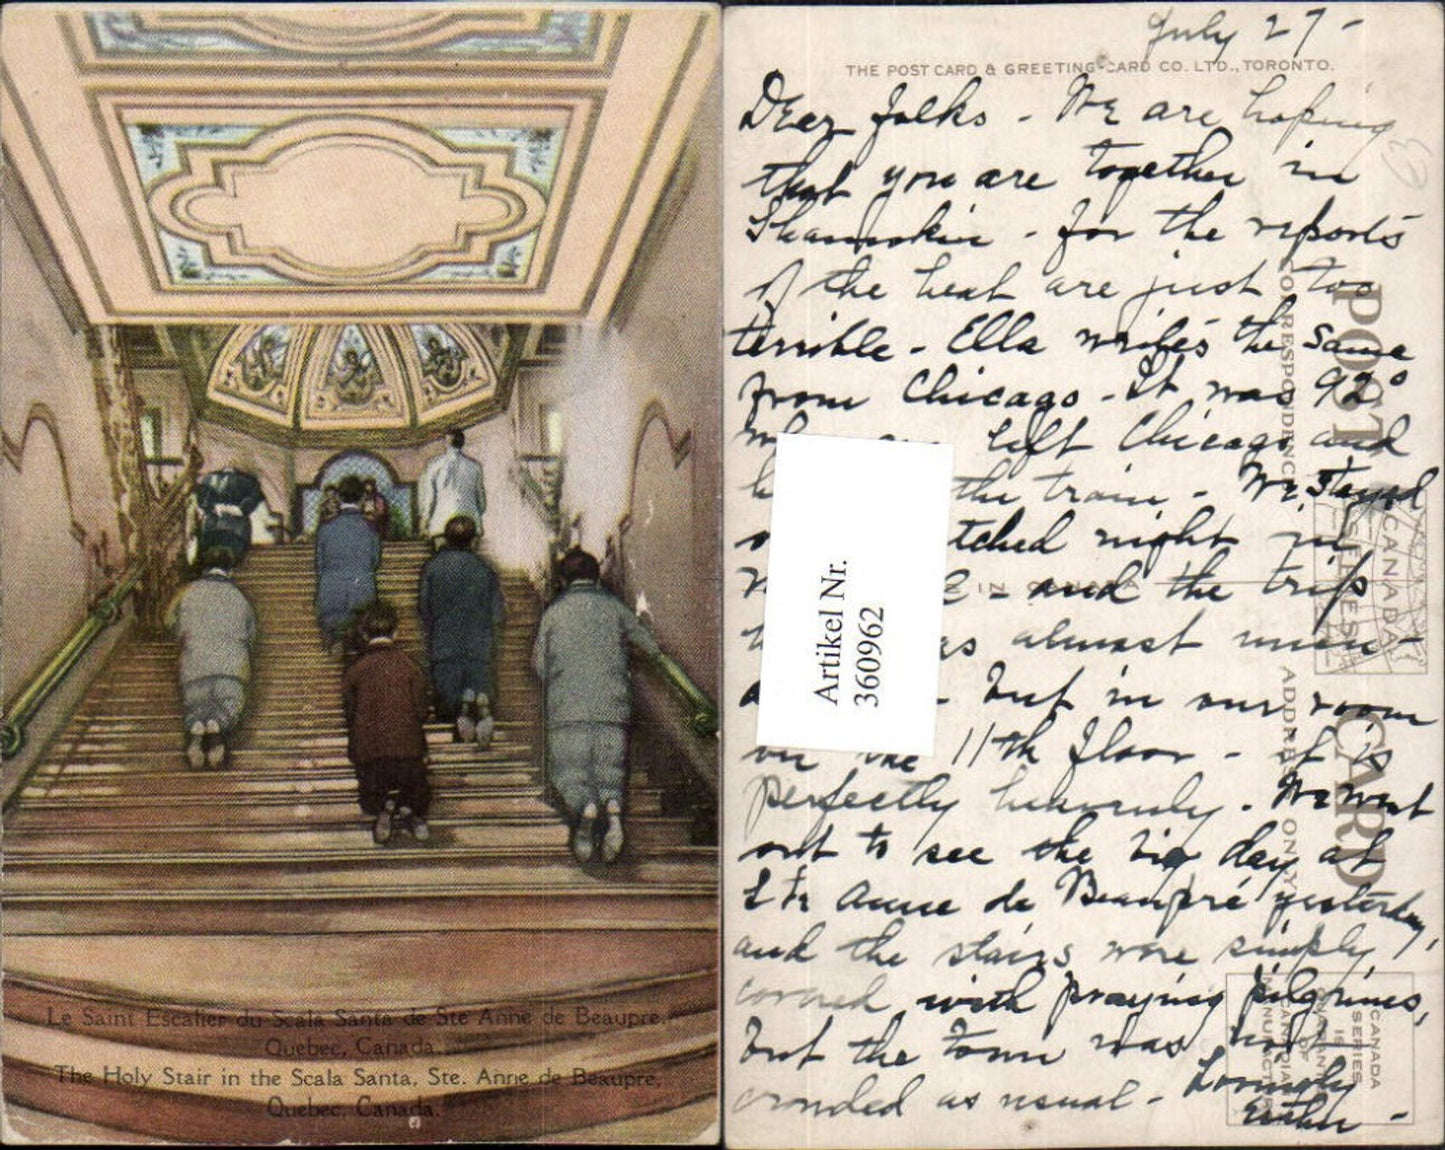 Le Saint Escalier du Scala Santa de Ste Anne de Beaupre.
Quebec, Canada.
The Holy Stair in the Scala Santa, Ste. Anne de Beaupre,
Quebec, Canada.
July 27-
THE POST CARD & GREETING CARD CO. LTD., TORONTO.
Dear Folks - We are hoping
that you are together in
Shamokin - for the reports
of the heat are just too
terrible - Ella writes the same
from Chicago - It was 92°
left Chicago and
the train - We stayed
night in
- and the trip
almost
- but in our room
on the 11th floor - it is
perfectly heavenly. We went
out to see the big day at
Ste Anne de Beaupré yesterday,
and the stairs were simply
covered with praying pilgrims,
but the town was not
crowded as usual - Lovingly
Esther -
POST CARD
CORRESPONDENCE
ADDRESS ONLY
IN CANADA
CANADA
SERIES
CANADA
SERIES
IS
OF
Artikel Nr.
360962